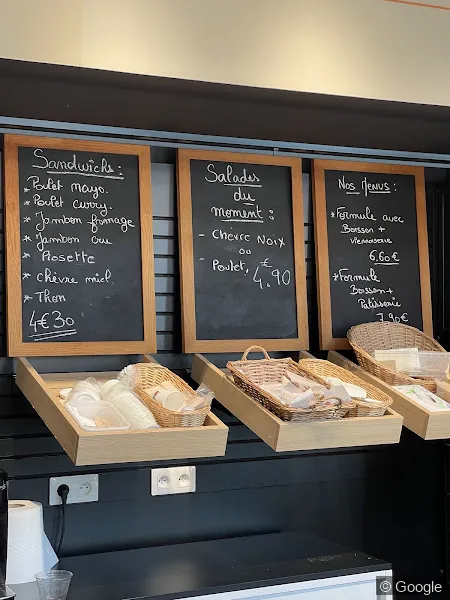 Sandwichs :
* Poulet mayo.
* Poulet curry.
* Jambon fromage
* Jambon cru
* Rosette
* chèvre miel
* Thon
4€30
Salades
du
moment :
- Chèvre Noix
ou
- Poulet,
4,90€
Nos Menus :
* Formule avec
Boisson +
Viennoiserie
6,60€
* Formule
Boisson +
Patisserie
7,90€
© Google